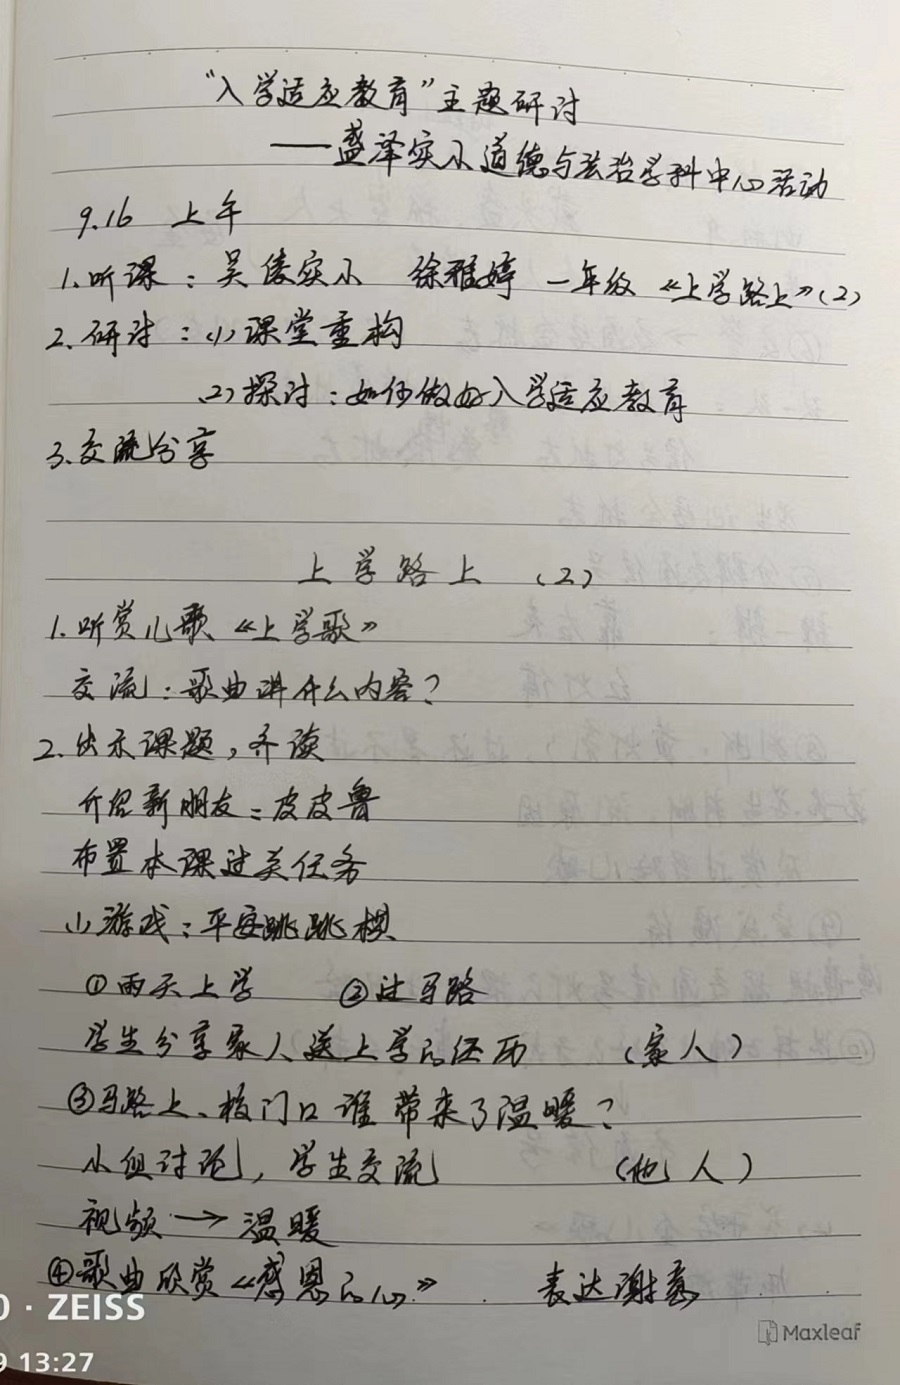 “入学适应教育”主题研讨
——盛泽实小道德与法治学科中心活动
9.16 上午
1.听课：吴偻实小 徐雅婷 一年级《上学路上》(2)
2.研讨：(1)课堂重构
(2)探讨：如何做好入学适应教育
3.交流分享
上学路上 (2)
1.听赏儿歌《上学歌》
交流：歌曲讲什么内容？
2.出示课题，齐读
介绍新朋友：皮皮鲁
布置本课过关任务
(1)游戏：平安跳跳棋
①雨天上学 ②过马路
学生分享家人送上学的经历 (家人)
③马路上、校门口谁带来了温暖？
小组讨论，学生交流 (他人)
视频→温暖
④歌曲欣赏《感恩的心》 表达谢意
0·ZEISS
9 13:27
Maxleaf